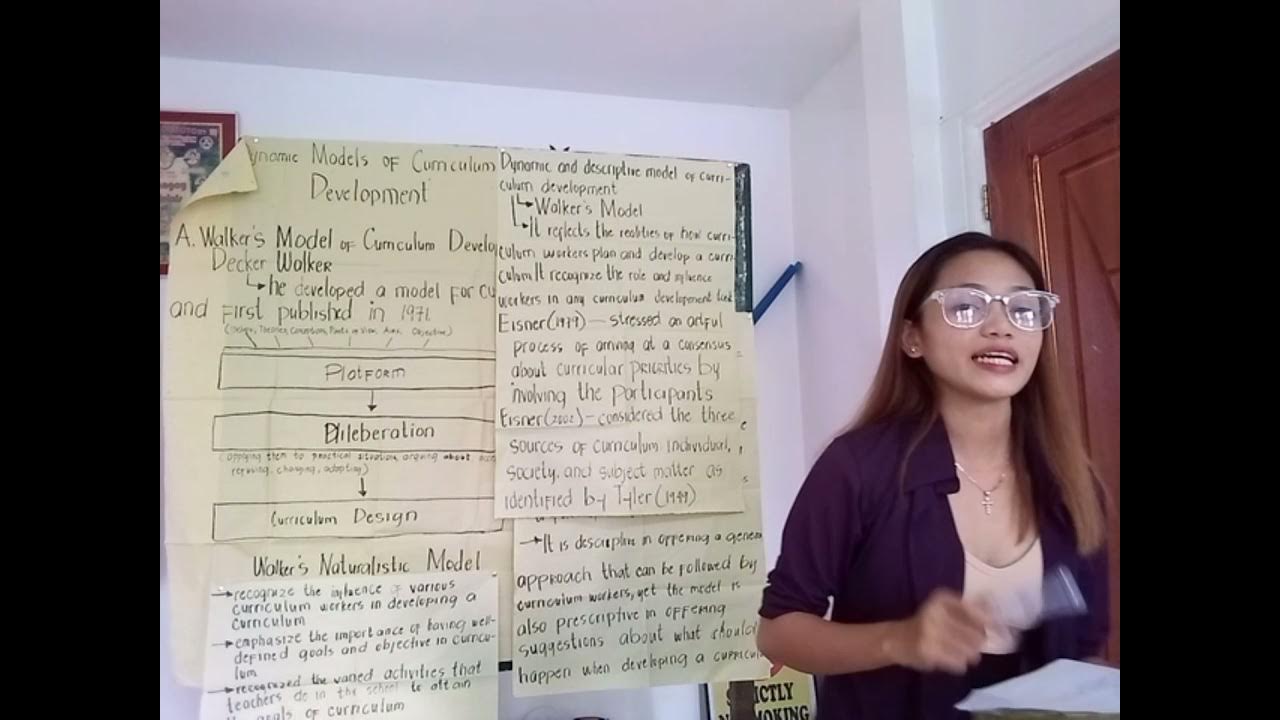 ynamic Models of Curriculum
Development
A. Walker's Model of Curriculum Develo
Decker Walker
he developed a model for cu
and first published in 1971
Platform
Dileberation
(applying them to practical situation, arguing about acce
refusing, changing, adopting)
Curriculum Design
Walker's Naturalistic Model
recognize the influence of various
curriculum workers in developing a
curriculum
emphasize the importance of having well-
defined goals and objective in curricu-
lum
recognized the varied activities that
teachers do in the school to attain
goals of curriculum
Dynamic and descriptive model of curri-
culum development
Walker's Model
It reflects the realities of how curri-
culum workers plan and develop a curri
culum It recognize the role and influence
workers in any curriculum development
Eisner(1979) — stressed an artful
process of arriving at a consensus
about curricular priorities by
involving the participants
Eisner(2002) — considered the three
sources of curriculum individual,
society, and subject matter as
identified by Tyler (1949)
It is descriptive in offering a genera
approach that can be followed by
curriculum workers, yet the model is
also prescriptive in offering
suggestions about what should
happen when developing a curriculu
CTLY
MOKING